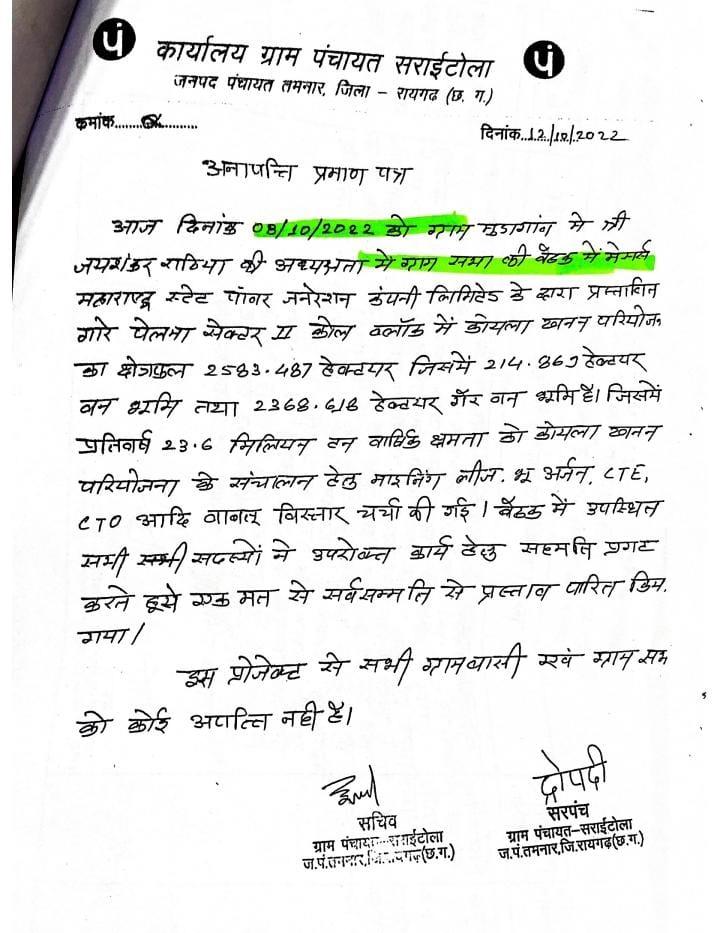 पं कार्यालय ग्राम पंचायत सराईटोला पं
जनपद पंचायत तमनार, जिला – रायगढ़ (छ. ग.)
कमांक.................
दिनांक..12/10/2022
अनापत्ति प्रमाण पत्र
आज दिनांक 08/10/2022 को ग्राम मुडागांव मे श्री
जयशंकर राठिया की अध्यक्षता मे ग्राम सभा की बैठक में मेसर्स
महाराष्ट्र स्टेट पॉवर जनरेशन कंपनी लिमिटेड के द्वारा प्रस्तावित
गारे पेलमा सेक्टर II कोल ब्लॉक में कोयला खनन परियोजन
का क्षेत्रफल 2583.487 हेक्टयर जिसमें 214.869 हेक्टयर
वन भूमि तथा 2368.618 हेक्टयर गैर वन भूमि है। जिसमें
प्रतिवर्ष 23.6 मिलियन टन वार्षिक क्षमता को कोयला खनन
परियोजना के संचालन हेतु माइनिंग लीज. भू अर्जन, CTE,
CTO आदि बाबत् विस्तार चर्चा की गई। बैठक में उपस्थित
सभी सभी सदस्यों ने उपरोक्त कार्य हेतु सहमति प्रगट
करते हुये एक मत से सर्वसम्मति से प्रस्ताव पारित किय.
गया।
इस प्रोजेक्ट से सभी ग्रामवासी एवं ग्राम सभ
को कोई अपत्ति नही है।
द्रोपदी
सचिव
ग्राम पंचायत-सराईटोला
ज.पं.तमनार,जि.रायगढ़(छ.ग.)
सरपंच
ग्राम पंचायत–सराईटोला
ज.पं.तमनार,जि.रायगढ़(छ.ग.)